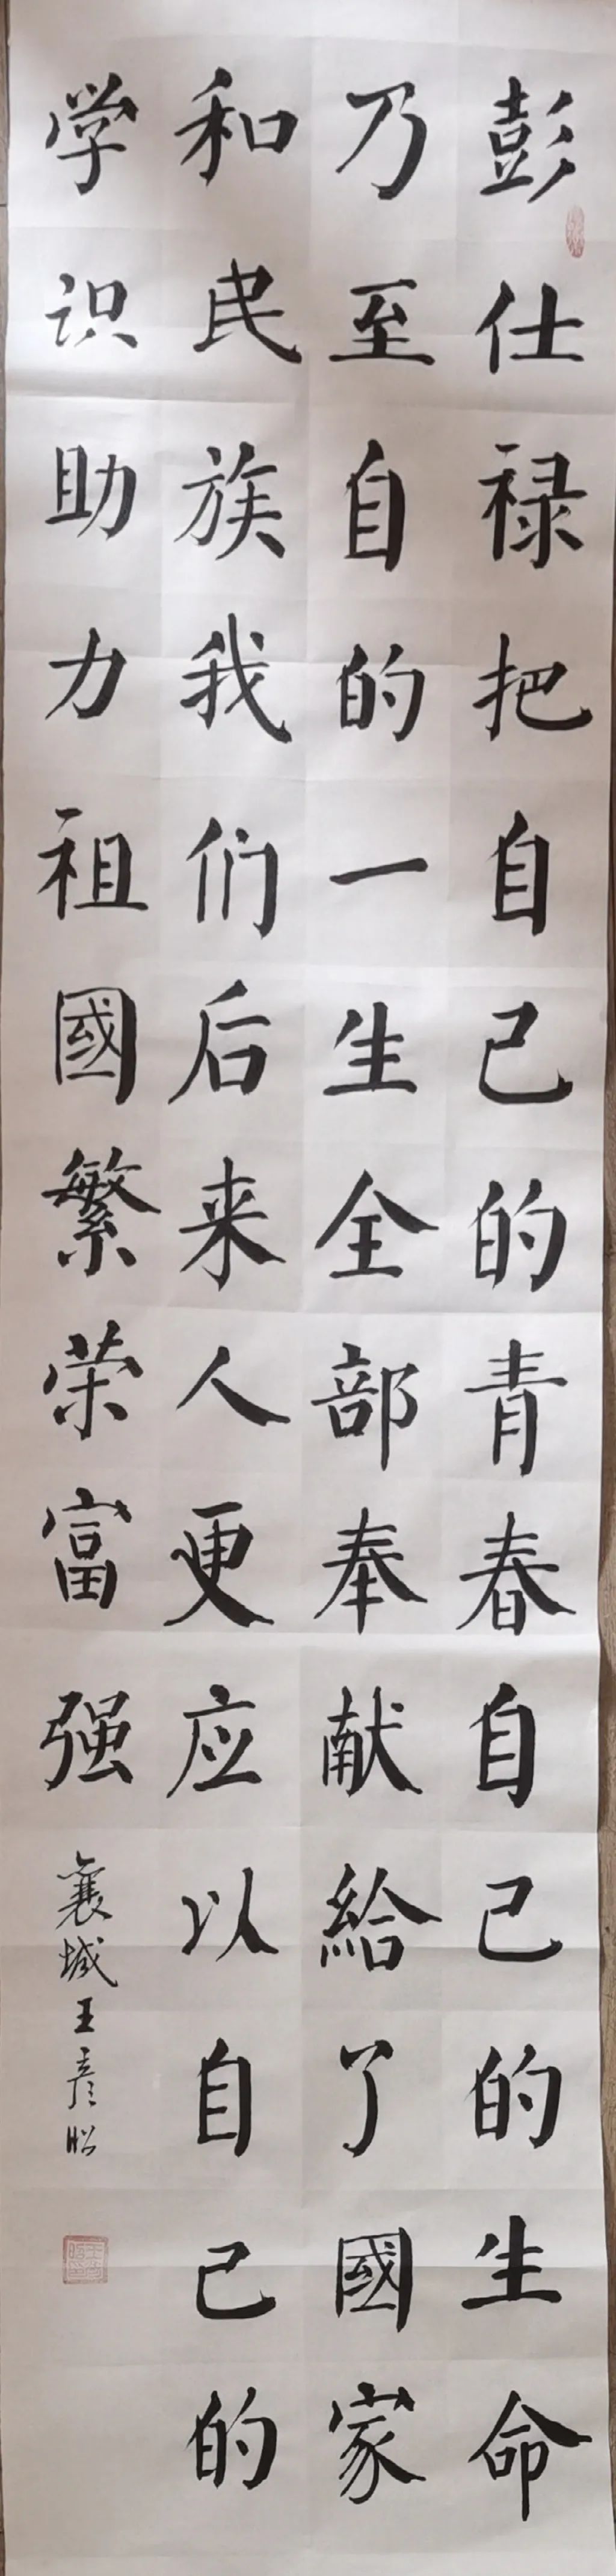 彭仕禄把自己的青春自己的生命
乃至自的一生全部奉献給了國家
和民族我们后来人更应以自己的
学识助力祖國繁荣富强
襄城王彦昭